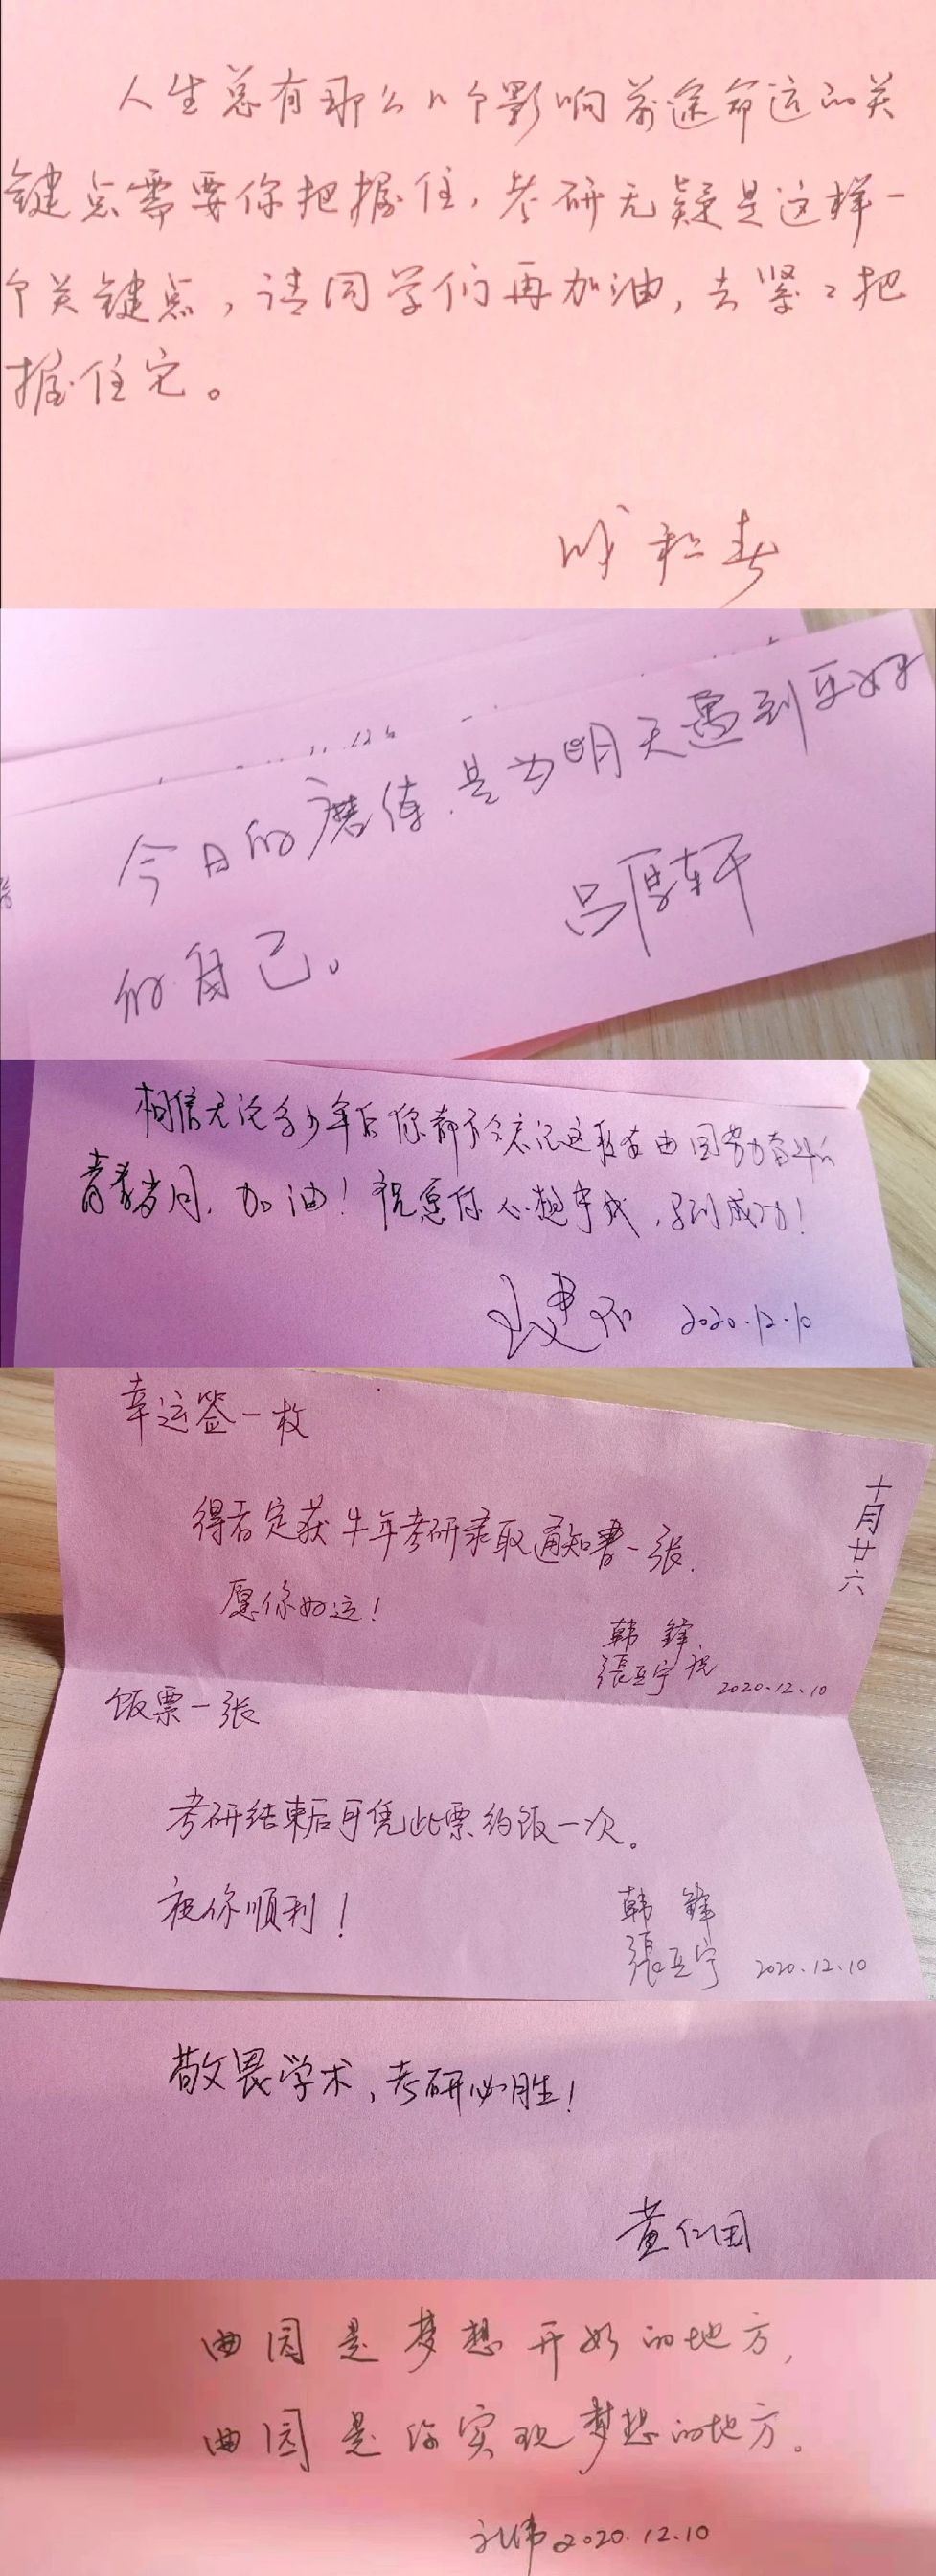 人生总有那么几个影响前途命运的关
键点需要你把握住，考研无疑是这样一
个关键点，请同学们再加油，去紧紧把
握住它。
今日的磨练，是为明天遇到更好
的自己。
吕厚轩
相信无论多少年后你都不会忘记这段在曲园努力奋斗的
青春岁月，加油！祝愿你心想事成，马到成功！
2020.12.10
幸运签一枚
得者定获牛年考研录取通知书一张.
愿你好运！
十月廿六
韩锋
張立宁 祝
2020.12.10
饭票一张
考研结束后可凭此票约饭一次。
祝你顺利！
韩锋
張立宁 2020.12.10
敬畏学术，考研必胜！
黄仁国
曲园是梦想开始的地方，
曲园是你实现梦想的地方。
2020.12.10